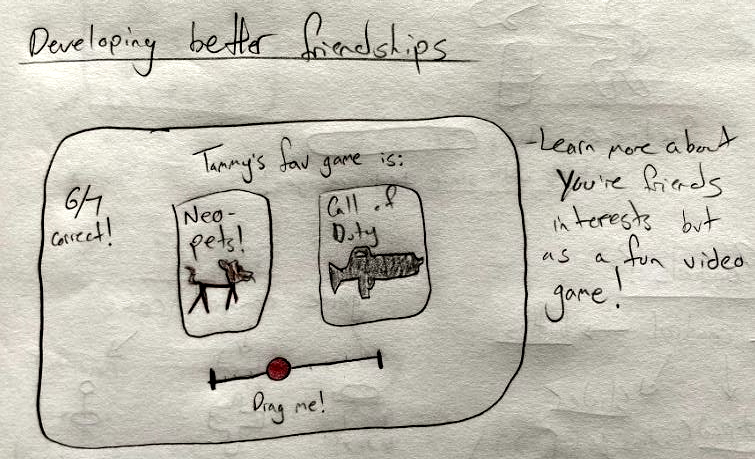 Developing better friendships
Tammy's fav game is:
6/7
correct!
Neo-
pets!
Call of
Duty
Drag me!
-Learn more about
You're friends
interests but
as a fun video
game!